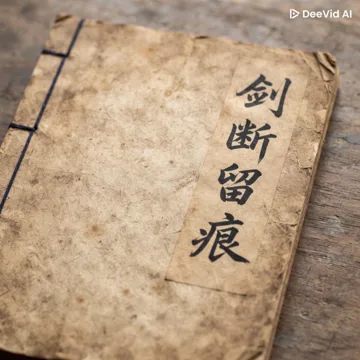 DeeVid AI
剑断留痕